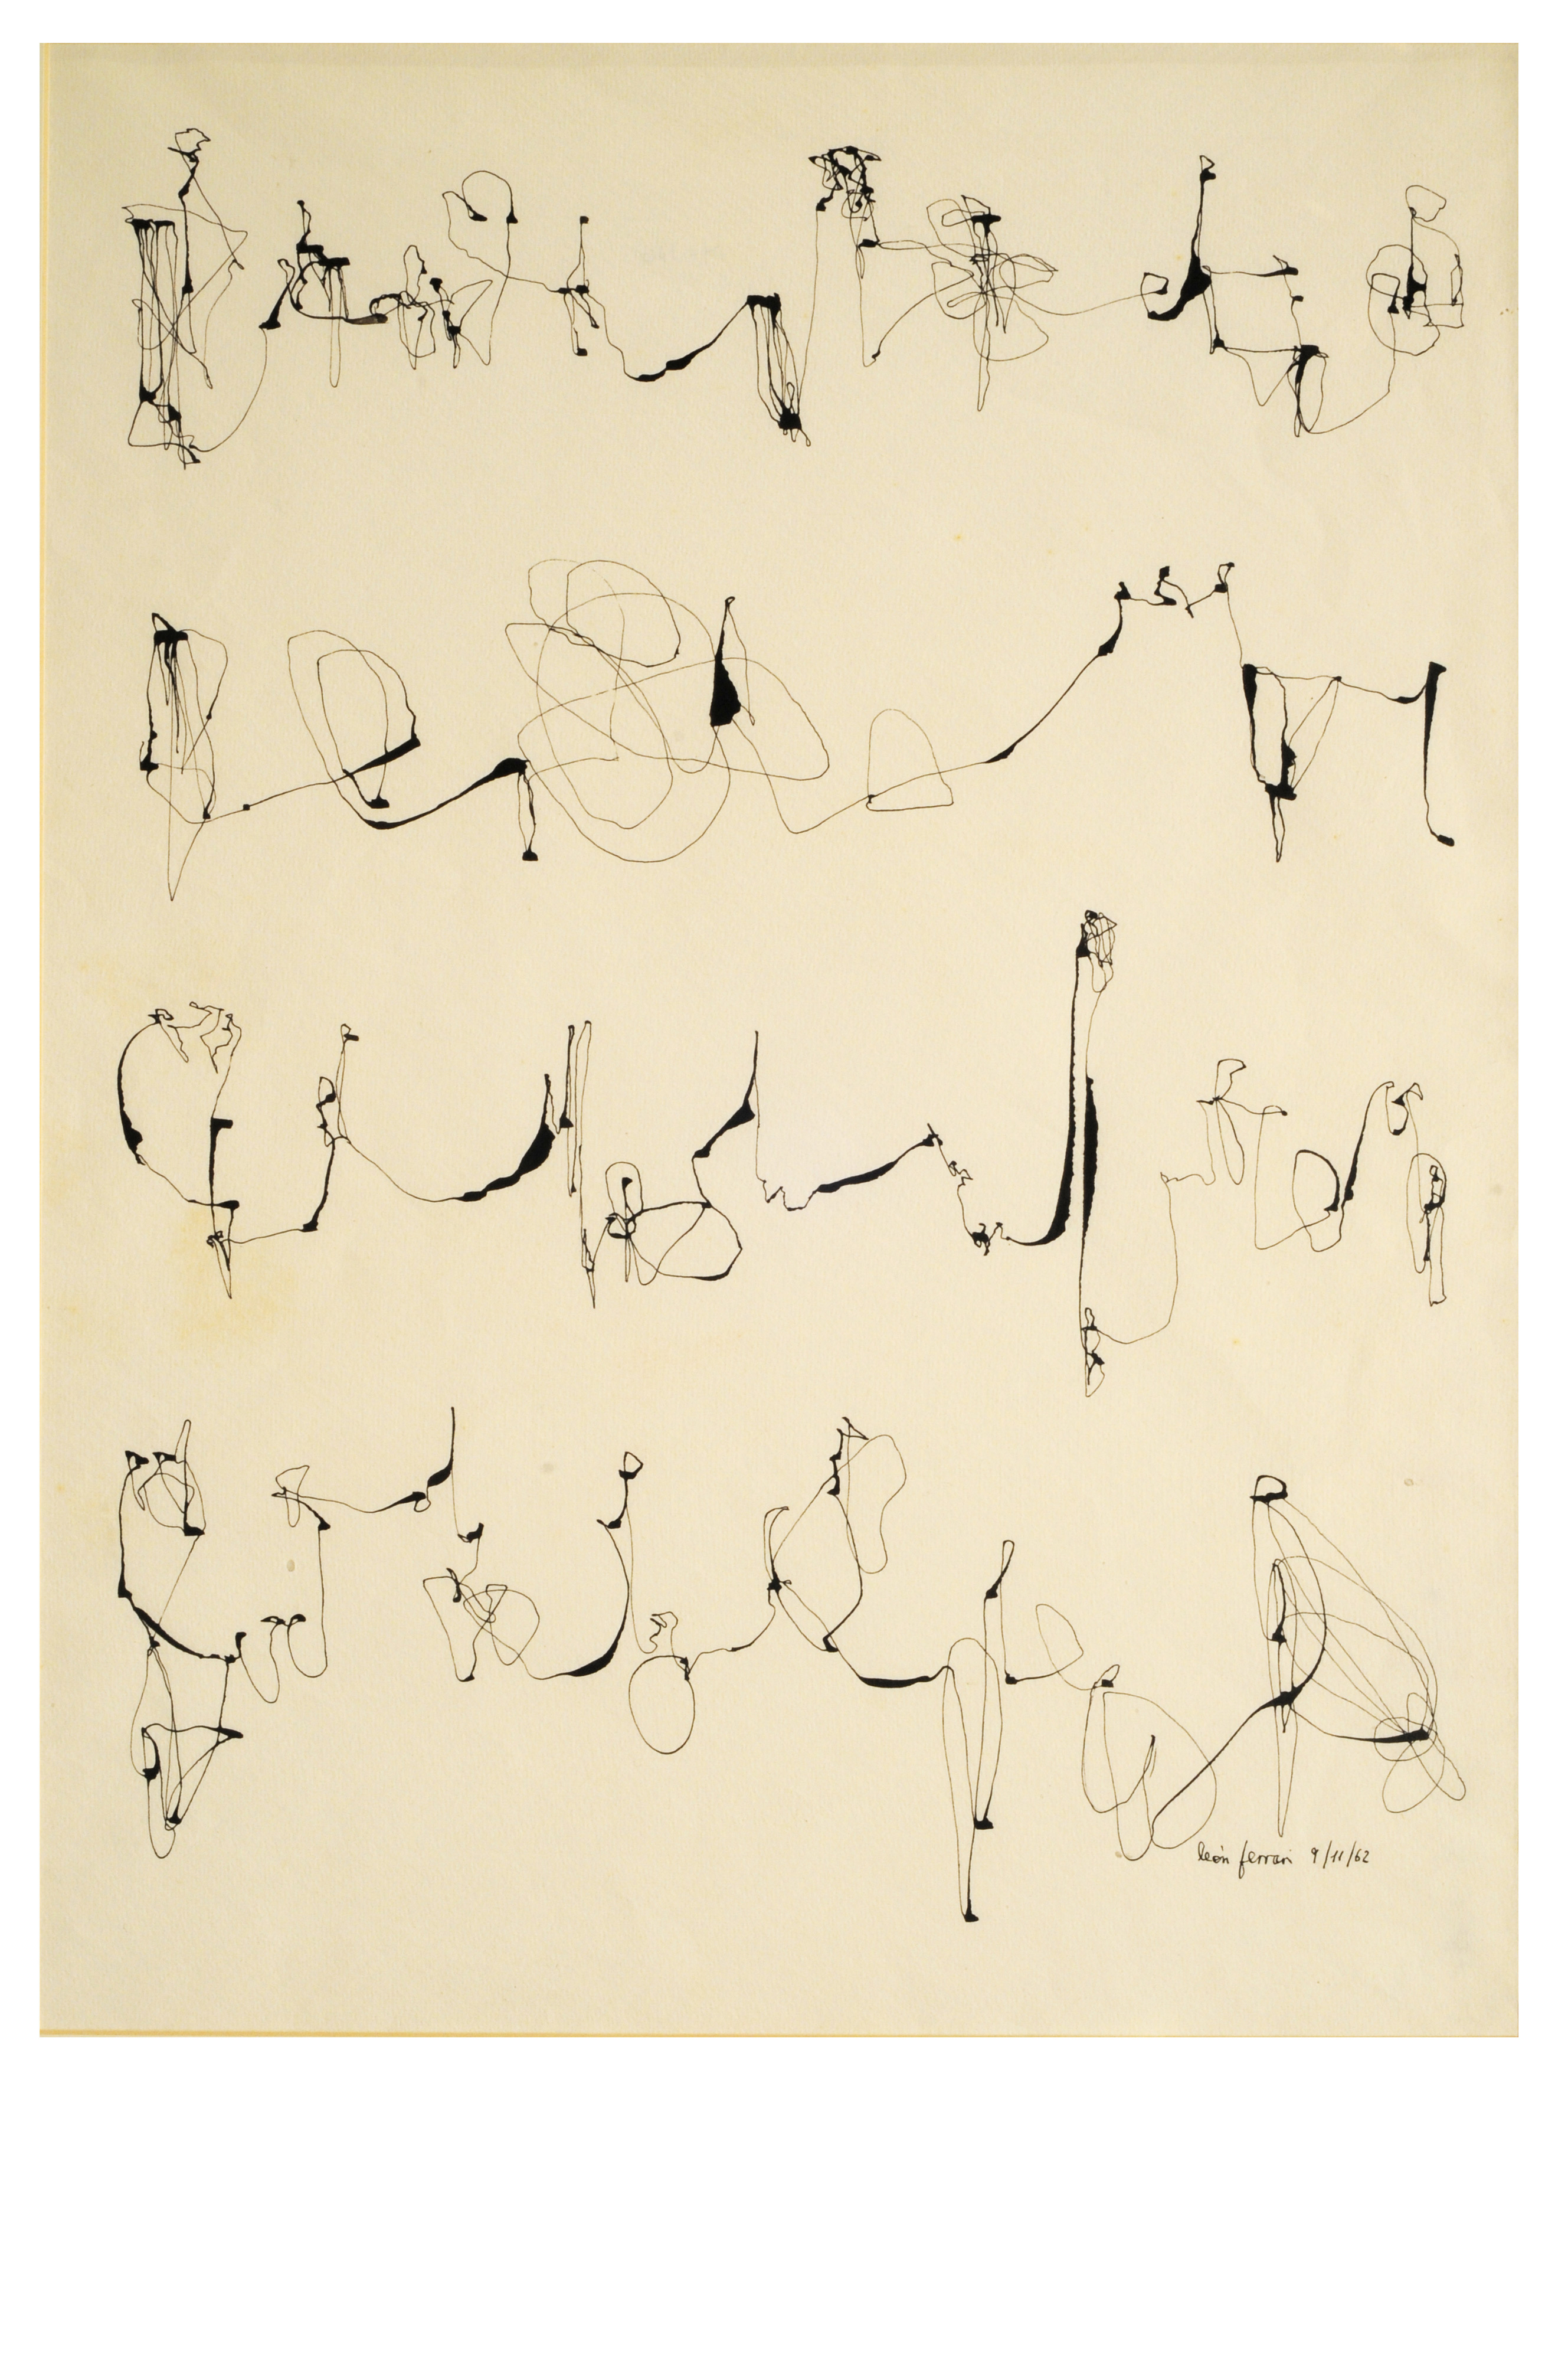 león ferrari 9/11/62